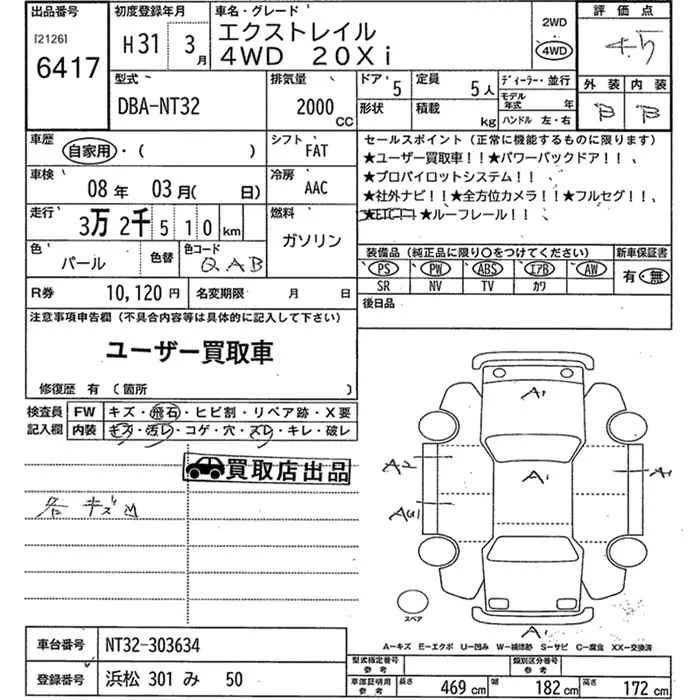 出品番号 初度登録年月 車名・グレード 評価点
[2126] H31 3月 エクストレイル 2WD
6417 4WD 20Xi 4WD 4.5
型式 排気量 ドア 5 定員 5人 ディーラー・並行 外装 内装
DBA-NT32 2000CC 形状 積載 kg モデル年式 年 ハンドル 左・右 B B
車歴 自家用・( ) シフト FAT セールスポイント(正常に機能するものに限ります)
★ユーザー買取車!!★パワーバックドア!!
車検 08年 03月( 日) 冷房 AAC ★プロパイロットシステム!!
★社外ナビ!!★全方位カメラ!!★フルセグ!!
走行 3万2千510km 燃料 ガソリン ★ETC!!★ルーフレール!!
色 パール 色替 色コード QAB 装備品(純正品に限り○をつけてください) 新車保証書
PS PW ABS エアB AW 有・無
R券 10,120円 名変期限 月 日 SR NV TV カワ
注意事項申告欄(不具合内容等は具体的に記入して下さい) 後日品
ユーザー買取車
修復歴 有(箇所 )
検査員 FW キズ・飛石・ヒビ割・リペア跡・X要
記入欄 内装 キズ・汚レ・コゲ・穴・スレ・キレ・破レ
買取店出品
A1
A2 A1 A1
各キズ凹 AU1
スペア
A1
A−キズ E−エクボ U−凹み W−補修跡 S−サビ C−腐食 XX−交換済
車台番号 NT32-303634 型式指定番号 参考 類別区分番号 参考
登録番号 浜松 301 み 50 車庫証明用 参考 長さ 469cm 幅 182cm 高さ 172cm